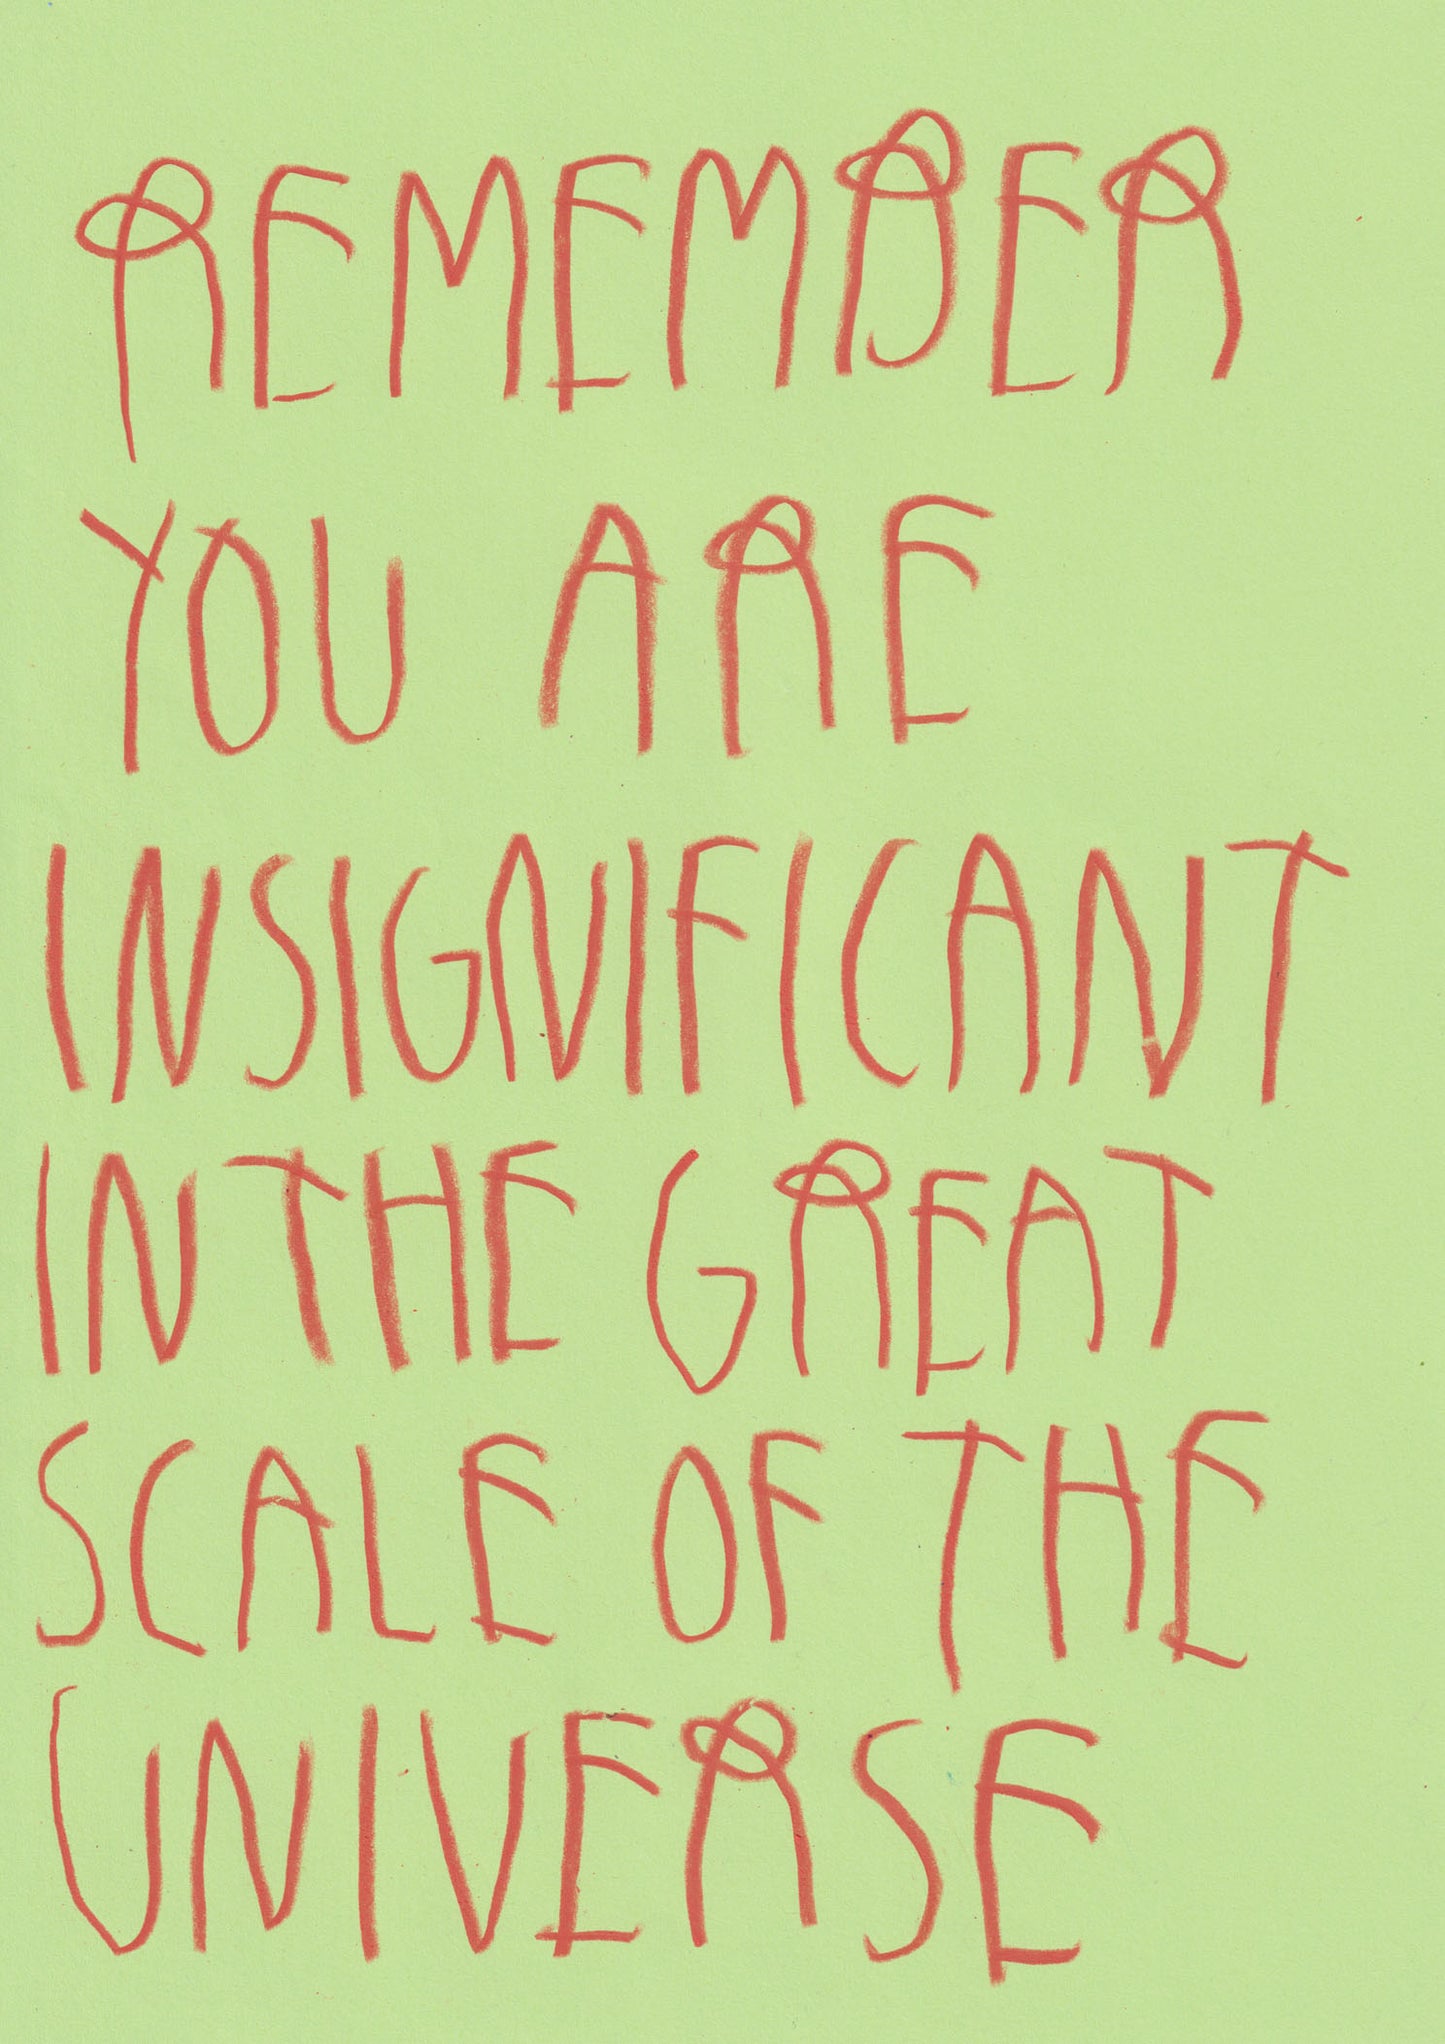 REMEMBER
YOU ARE
INSIGNIFICANT
IN THE GREAT
SCALE OF THE
UNIVERSE